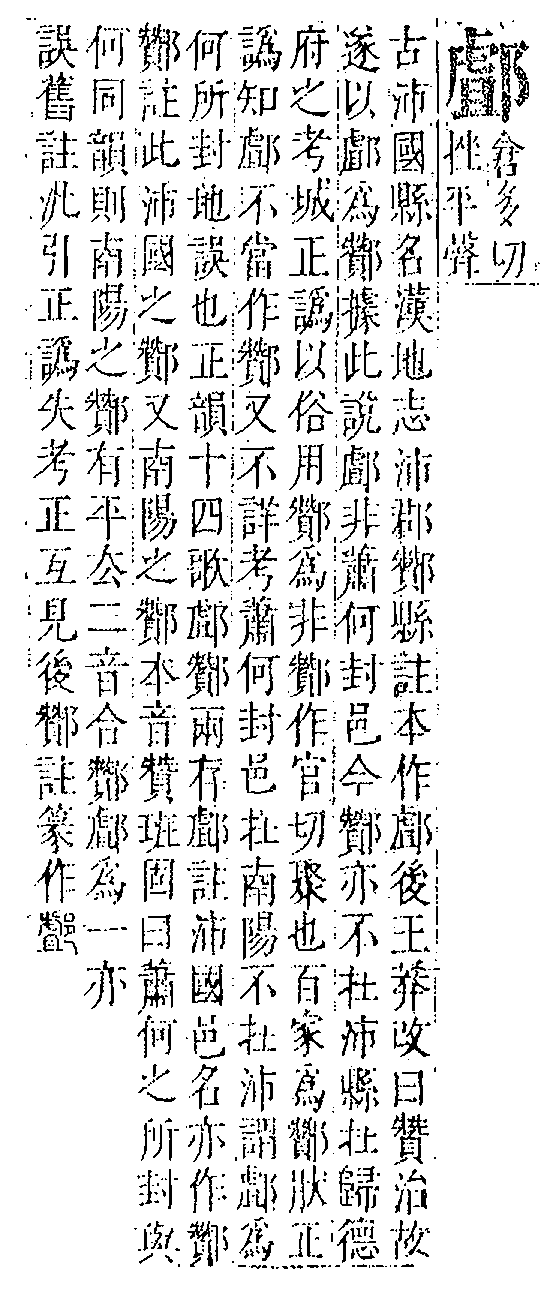 鄌倉多切
挫平聲
古沛國縣名漢地志沛郡酇縣註本作䣜後王莽改曰贊治故
遂以䣜為酇據此說䣜非蕭何封邑今酇亦不在沛縣在歸德
府之考城正譌以俗用酇為非酇作官切聚也百家為酇狀正
譌知䣜不當作酇又不詳考蕭何封邑在南陽不在沛謂䣜為
何所封地誤也正韻十四歌䣜酇兩存䣜註沛國邑名亦作酇
酇註此沛國之酇又南陽之酇本音贊班固曰蕭何之所封與
何同韻則南陽之酇有平去二音合酇䣜為一亦
誤舊註汎引正譌失考正互見後酇註篆作酇